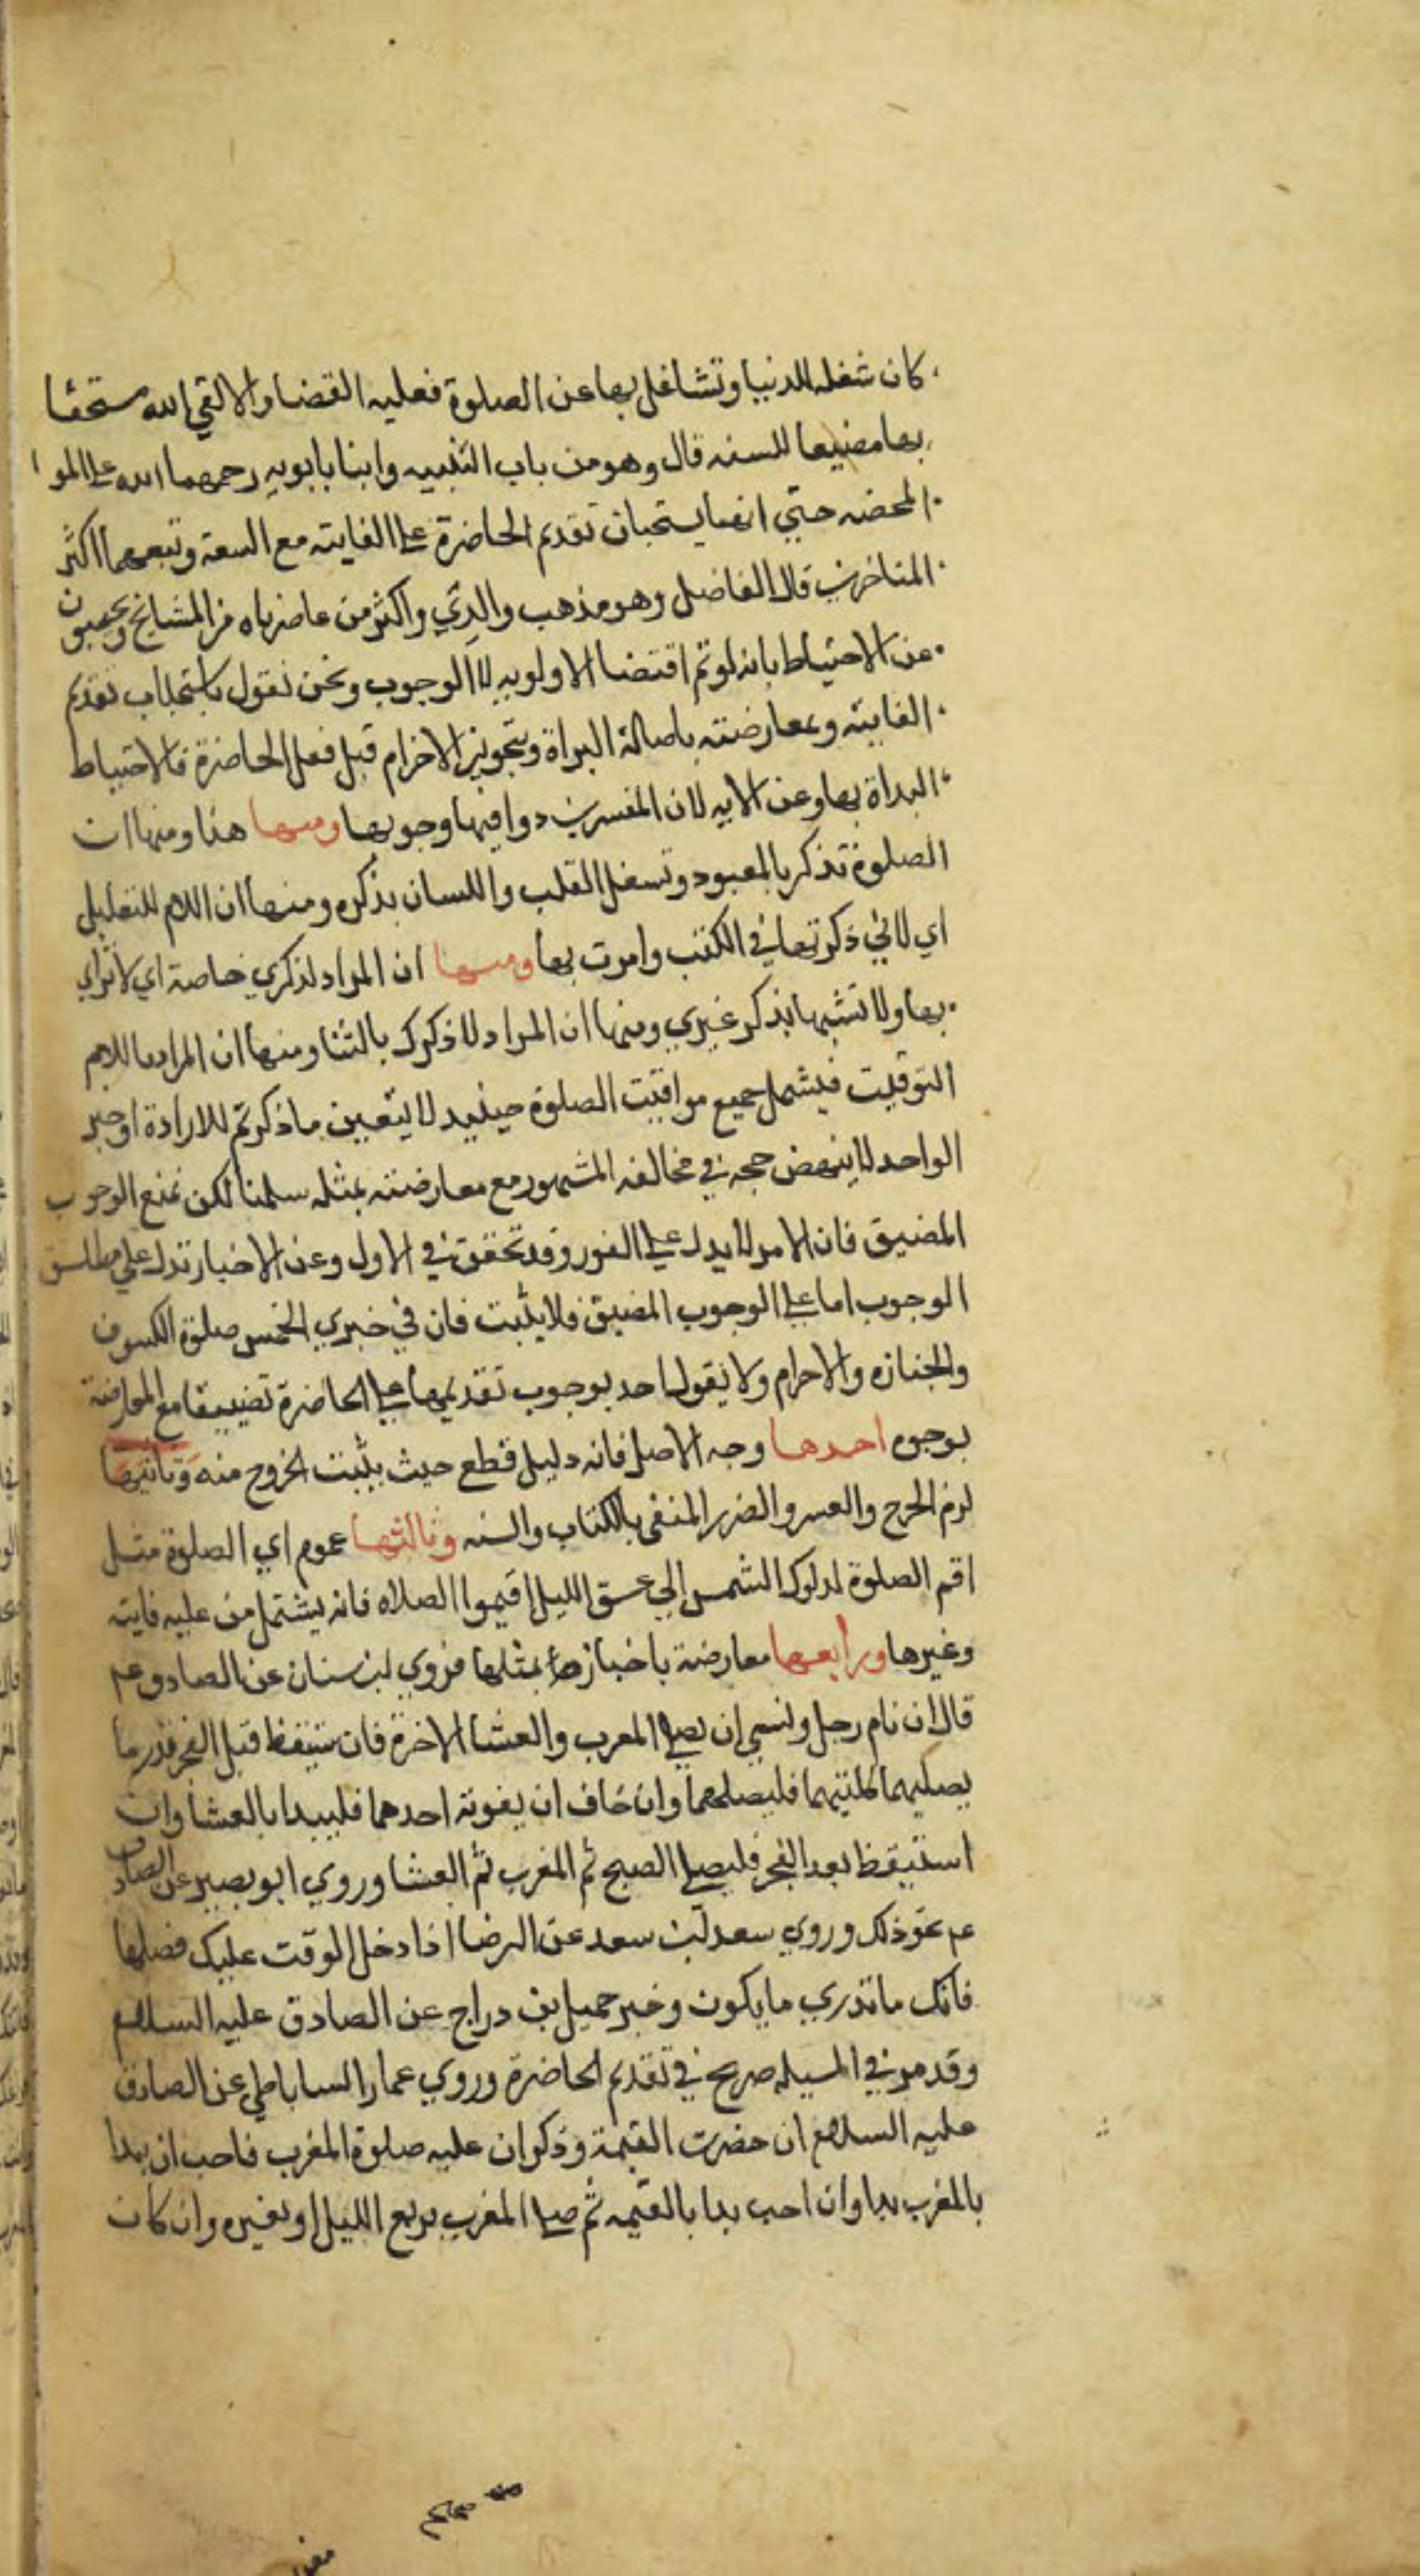 كان شغله للدنيا وتشاغل بها عن الصلوة فعليه القضا والا لقي الله مستخفا
بها مضيعا للسنه قال وهو من باب التنبيه وابنا بابويه رحمهما الله علي المو ا
المحضه حتي انهما يستحبان تقديم الحاضرة علي الفايته مع السعة وتبعهما اكثر
المتاخرين قال الفاضل وهو مذهب والدي واكثر من عاصرناه من المشايخ ويجيبون
عن الاحتياط بانه لو تم اقتضا الاولويه لا الوجوب ونحن نقول باستحباب تقديم
الفايته وبمعارضته باصالة البراة وبتجويز الاخترام قبل فعل الحاضرة فالاحتياط
البداة بها وعن الايه لان المفسرين دوا فيها وجوها ومنها هذا ومنها ان
الصلوة تذكر بالمعبود وتشغل القلب واللسان بذكره ومنها ان اللام للتعليل
اي لاني ذكرتها في الكتب وامرت بها ومنها ان المراد لذكري خاصة اي لا ترائي
بها ولا تشبها بذكر غيري ومنها ان المراد لاذكرك بالثنا ومنها ان المراد باللام
التوقيت فيشمل جميع مواقيت الصلوة حينيد لا يتعين ما ذكرتم للارادة او خبر
الواحد لا ينهض حجه في مخالفه المشهور مع معارضته بمثله سلمنا لكن نمنع الوجوب
المضيق فان الامر لا يدل علي الفور وقد تحقق في الاول وعن الاخبار تدل علي مطلق
الوجوب اما علي الوجوب المضيق فلا يثبت فان في خبري الخمس صلوة الكسوف
والجنازه والاحرام ولا يقول احد بوجوب تقديمها علي الحاضرة تضييقا مع المعارضة
بوجوه احدها وجه الاصل فانه دليل قطع حيث يثبت الخروج منه وثانيها
لزم الحرج والعسر والضرر المنفي بالكتاب والسنه وثالثها عموم اي الصلوة مثل
اقم الصلوة لدلوك الشمس الي غسق الليل اقيموا الصلاه فانه يشتمل من عليه فايته
وغيرها ورابعها معارضة باخبارها بمثلها فروي ابن سنان عن الصادق عم
قال ان نام رجل ونسي ان يصلي المغرب والعشا الاخرة فان ستيقظ قبل الفجر قدر ما
يصليهما كلتيهما فليصلهما وان خاف ان يفوته احدهما فليبدا بالعشا وان
استيقظ بعد الفجر فليصلي الصبح ثم المغرب ثم العشا وروي ابو بصير عن الصادق
عم نحو ذلك وروي سعد بن سعد عن الرضا اذا دخل الوقت عليك فصلها
فانك ما تدري ما يكون وخبر جميل بن دراج عن الصادق عليه السلام
وقد مر في المسيله صريح في تقديم الحاضرة وروي عمار الساباطي عن الصادق
عليه السلام ان حضرت العتمة وذكر ان عليه صلوة المغرب فاحب ان يبدا
بالمغرب بدا وان احب بدا بالعتمه ثم صلي المغرب بربع الليل او بغيره وان كان